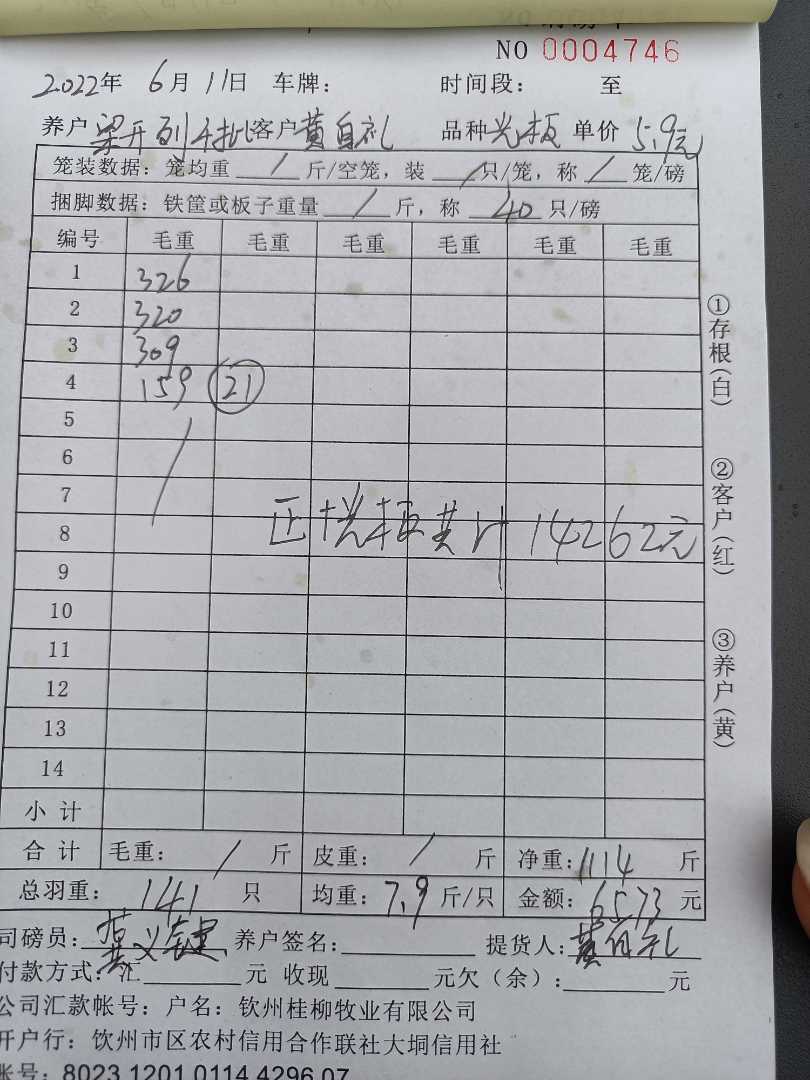 NO 0004746
2022年 6月 11日 车牌： 时间段： 至
养户 梁开列 客户 黄自礼 品种 光板 单价 5.9元
笼装数据：笼均重 / 斤/空笼，装 / 只/笼，称 / 笼/磅
捆脚数据：铁筐或板子重量 / 斤，称 40 只/磅
编号 毛重 毛重 毛重 毛重 毛重 毛重
1 326
2 320
3 309
4 159 21
5
6
7
8 正 板共计 14262元
9
10
11
12
13
14
小 计
合 计 毛重： / 斤 皮重： / 斤 净重：1114 斤
总羽重： 141 只 均重：7.9 斤/只 金额：6573 元
司磅员： 养户签名： 提货人：黄自礼
付款方式：汇 元 收现 元欠（余）： 元
公司汇款帐号：户名：钦州桂柳牧业有限公司
开户行：钦州市区农村信用合作联社大垌信用社
帐号：8023 1201 0114 4296 07
①存根（白）
②客户（红）
③养户（黄）